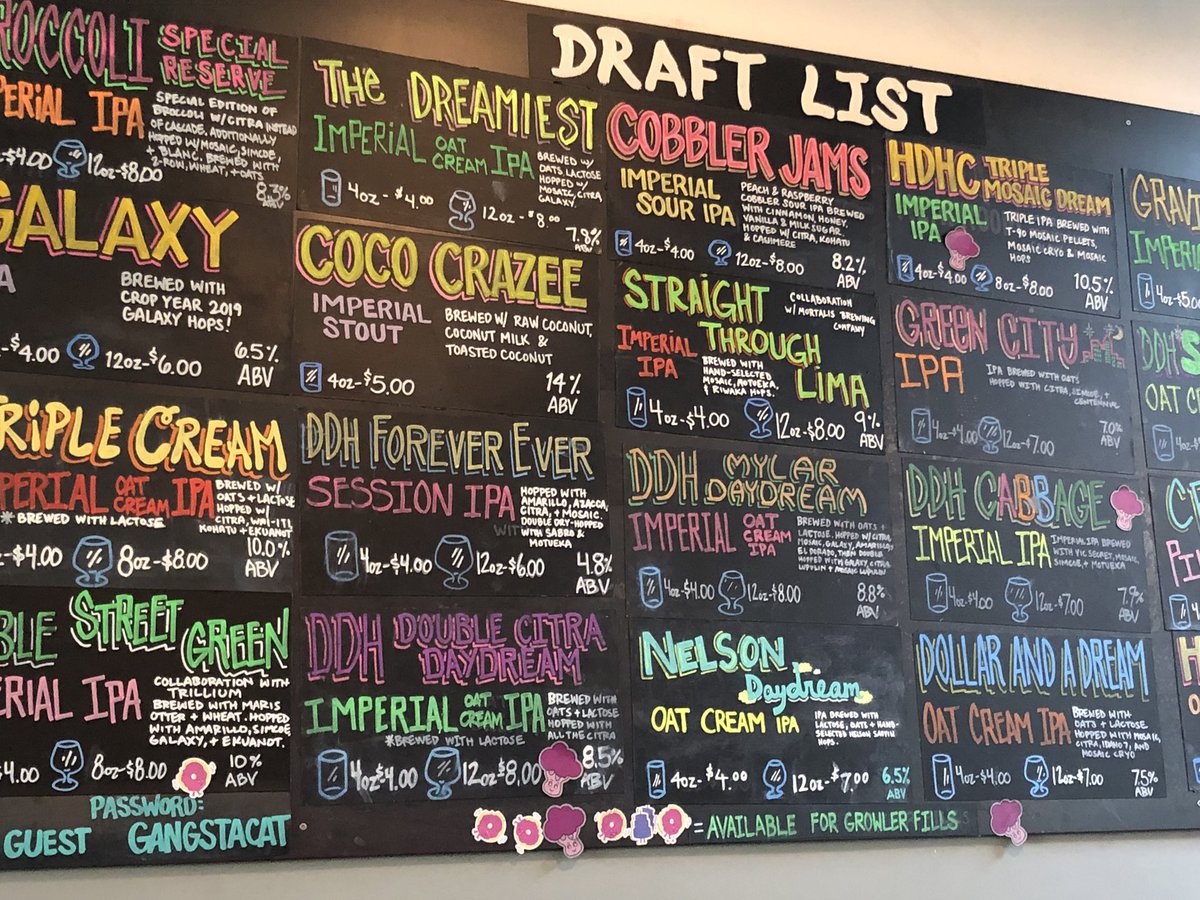 DRAFT LIST
ROCCOLI SPECIAL RESERVE
PERIAL IPA
SPECIAL EDITION OF
BROCCOLI W/CITRA INSTEAD
OF CASCADE. ADDITIONALLY
HOPPED W/MOSAIC, SIMCOE,
+ BLANC. BREWED WITH
2-ROW, WHEAT, + OATS
-$4.00 12oz-$8.00
8.3%
GALAXY
A
BREWED WITH
CROP YEAR 2019
GALAXY HOPS!
-$4.00 12oz-$6.00
6.5%
ABV
TRIPLE CREAM
PERIAL OAT CREAM IPA
*BREWED WITH LACTOSE
BREWED W/
OATS + LACTOSE
HOPPED W/
CITRA, WAI-ITI,
KOHATU + EKUANOT
-$4.00 8oz-$8.00
10.0%
ABV
BLE STREET GREEN
ERIAL IPA
COLLABORATION WITH
TRILLIUM
BREWED WITH MARIS
OTTER + WHEAT. HOPPED
WITH AMARILLO, SIMCOE
GALAXY, + EKUANOT.
$4.00 8oz-$8.00
10%
ABV
PASSWORD:
GUEST GANGSTACAT
THE DREAMIEST
IMPERIAL OAT CREAM IPA
BREWED W/
OATS LACTOSE
HOPPED W/
MOSAIC, CITRA
GALAXY
4oz-$4.00 12oz-$8.00
7.8%
ABV
COCO CRAZEE
IMPERIAL
STOUT
BREWED W/ RAW COCONUT,
COCONUT MILK &
TOASTED COCONUT
4oz-$5.00
14%
ABV
DDH FOREVER EVER
SESSION IPA
HOPPED WITH
AMARILLO, AZACCA,
CITRA, + MOSAIC.
DOUBLE DRY-HOPPED
WITH SABRO &
MOTUEKA
4oz-$4.00 12oz-$6.00
4.8%
ABV
DDH DOUBLE CITRA
DAYDREAM
IMPERIAL OAT CREAM IPA
*BREWED WITH LACTOSE
BREWED WITH
OATS + LACTOSE
HOPPED WITH
ALL THE CITRA
4oz$4.00 12oz$8.00
8.5%
ABV
COBBLER JAMS
IMPERIAL
SOUR IPA
PEACH & RASPBERRY
COBBLER SOUR IPA BREWED
WITH CINNAMON, HONEY,
VANILLA & MILK SUGAR.
HOPPED W/ CITRA, KOHATU
& CASHMERE
4oz-$4.00 12oz-$8.00
8.2%
ABV
STRAIGHT
THROUGH
LIMA
COLLABORATION
W/ MORTALIS BREWING
COMPANY
IMPERIAL
IPA
BREWED WITH
HAND-SELECTED
MOSAIC, MOTUEKA,
& RIWAKA HOPS.
4oz-$4.00 12oz-$8.00
9%
ABV
DDH MYLAR
DAYDREAM
IMPERIAL OAT CREAM IPA
BREWED WITH OATS +
LACTOSE. HOPPED W/CITRA,
MOSAIC, GALAXY, AMARILLO,
EL DORADO, THEN DOUBLE
HOPPED WITH GALAXY, CITRA
LUPULIN + MOSAIC LUPULIN
4oz-$4.00 12oz-$8.00
8.8%
ABV
NELSON
Daydream
OAT CREAM IPA
IPA BREWED WITH
LACTOSE, OATS + HAND-
SELECTED NELSON SAUVIN
HOPS.
4oz-$4.00 12oz-$7.00
6.5%
ABV
= AVAILABLE FOR GROWLER FILLS
HDHC TRIPLE
MOSAIC DREAM
IMPERIAL
IPA
TRIPLE IPA BREWED WITH
T-90 MOSAIC PELLETS,
MOSAIC CRYO & MOSAIC
HOPS
4oz-$4.00 8oz-$8.00
10.5%
ABV
GREEN CITY
IPA
IPA BREWED WITH OATS
HOPPED WITH CITRA, SIMCOE, +
CENTENNIAL
4oz-$4.00 12oz-$7.00
7.0%
ABV
DDH CABBAGE
IMPERIAL IPA
IMPERIAL IPA BREWED
WITH VIC SECRET, MOSAIC,
SIMCOE, + MOTUEKA
4oz-$4.00 12oz-$7.00
7.9%
ABV
DOLLAR AND A DREAM
OAT CREAM IPA
BREWED WITH
OATS + LACTOSE.
HOPPED WITH MOSAIC,
CITRA, IDAHO 7, AND
MOSAIC CRYO
4oz-$4.00 12oz-$7.00
7.5%
ABV
GRAVI
IMPERI
4oz-$5.0
DDH S
OAT C
4oz-$4
C
PI
4oz
H